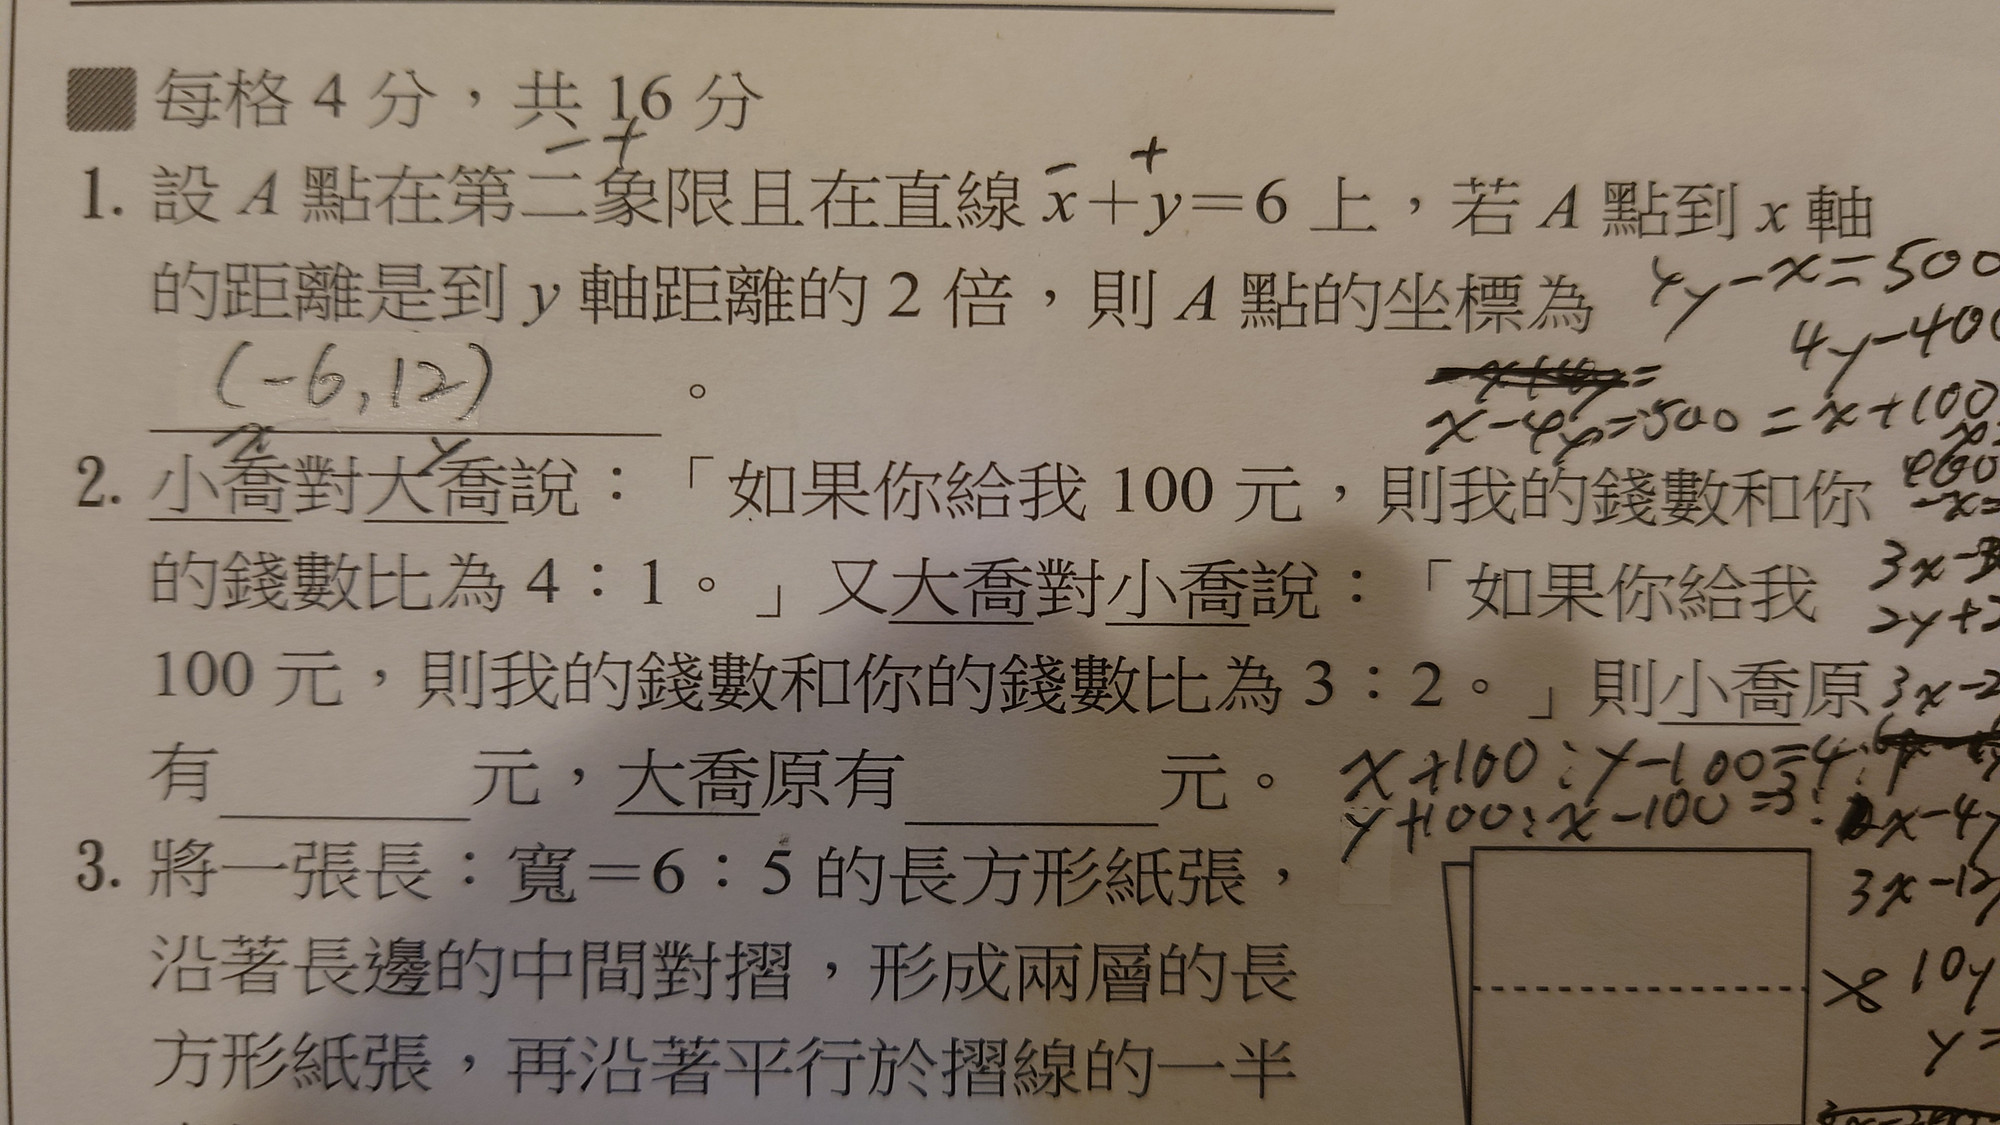 每格 4 分，共 16 分
− +
− +
1. 設 A 點在第二象限且在直線 x+y=6 上，若 A 點到 x 軸
的距離是到 y 軸距離的 2 倍，則 A 點的坐標為
4y-x=500
4y-400
(-6,12)。
x-4y=500 = x+100
x y
2. 小喬對大喬說：「如果你給我 100 元，則我的錢數和你
的錢數比為 4：1。」又大喬對小喬說：「如果你給我
3x-3
2y+2
100 元，則我的錢數和你的錢數比為 3：2。」則小喬原
3x-2
有 元，大喬原有 元。
x+100:y-100=4:
y+100:x-100=3:
x-4y
3. 將一張長：寬=6：5 的長方形紙張，
3x-12y
沿著長邊的中間對摺，形成兩層的長
10y
方形紙張，再沿著平行於摺線的一半
y=